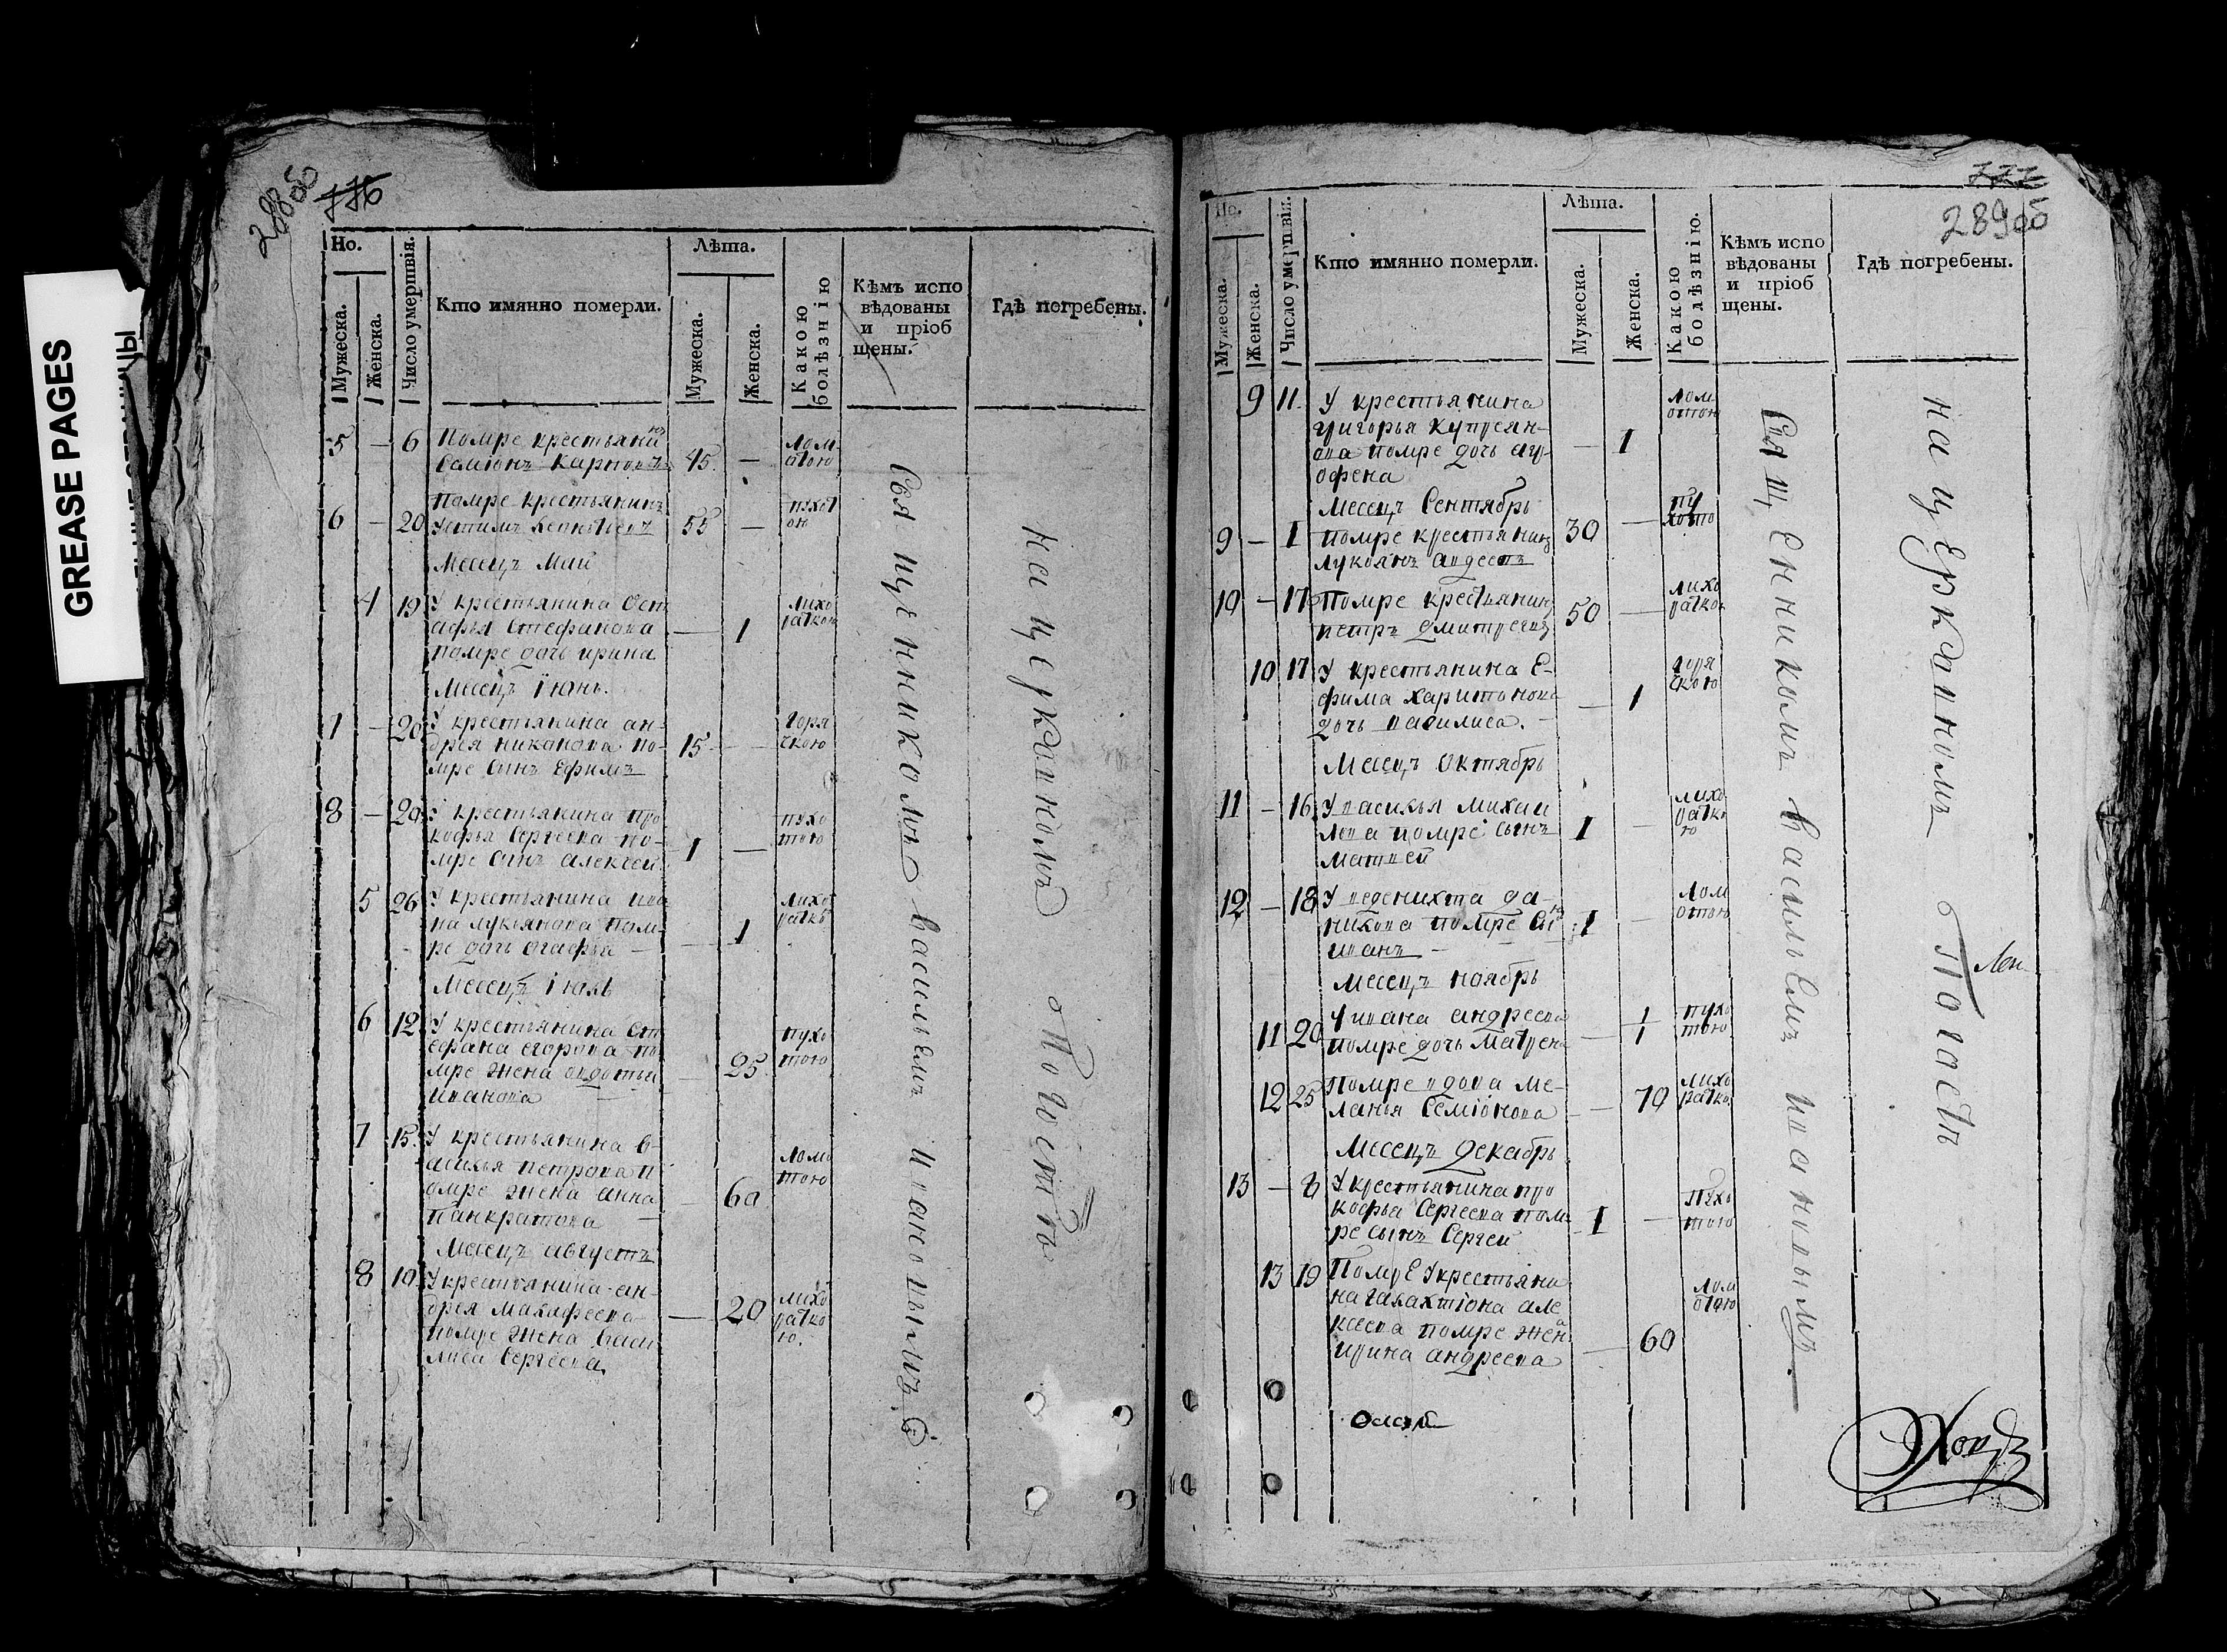 GREASE PAGES
288об
776
Но.
Мужеска.
Женска.
Число умертвія.
Кто имянно померли.
Лѣта.
Мужеска.
Женска.
Какою болѣзнію
Кѣмъ испо
вѣдованы
и пріоб
щены.
Гдѣ погребены.
5 — 6 Помре крестьянинъ
Семіонъ Карповъ 45 — Лом
отою
6 — 20 Помре крестьянинъ
Устимъ 55 — пухот
ою
Месецъ Маи
4 19 У крестьянина Ост
афья Стефанова
помре дочь ирина — 1 Лихо
раткою
Месецъ Iюнь.
7 — 20 У крестьянина ан-
дрея никонова по-
мре сынъ Ефимъ 15 — горя
чкою
8 — 20 У крестьянина про
кофья Сергеева по-
мре сынъ алексей 1 — пухо
тою
5 26 У крестьянина ива
на лукьянова пом-
ре дочь агафья — 1 Лихо
ратко
Месецъ Iюль
6 12 У крестьянина Ст
ефана егорова по
мре жена овдотьи
иванова — 25 пухо
тою
7 15 У крестьянина в-
асилья петрова п
омре жена анна
панкратова — 60 Ломо
тою
Месецъ августъ
8 10 У крестьянина ан-
дрея Макафеева
помре жена Васи
лиса Сергеева — 20 лихо
ратко
ю.
Священникомъ васильемъ ивановымъ
на церковномъ Погосте
777
289об
Но.
Мужеска.
Женска.
Число умертвія.
Кто имянно померли.
Лѣта.
Мужеска.
Женска.
Какою болѣзнію.
Кѣмъ испо
вѣдованы
и пріоб
щены.
Гдѣ погребены.
9 11 У крестьянина
григорья Купреян-
ова помре дочь агр-
офена — 1 Лом
отою
Месецъ Сентябрь
9 — 1 помре крестьянинъ
лукоянъ авдеевъ 30 — пу
хото
10 — 17 Помре крестьянинъ
петръ дмитреевъ 50 — лихо
раткою
10 17 У крестьянина Е-
фима харитонова
дочь василиса. — 1 горя
чкою
Месецъ октябрь
11 — 16 У василья михаи
лова помре сынъ
матвей 1 — лихо
ратко
ю
12 — 18 У веденихта да-
нилова помре сынъ
иванъ 1 — Лом
отою
Месецъ ноябрь
11 20 У ивана андреева
помре дочь Матрена — 1 пухо
тою
12 25 Помре вдова ме-
ланья Семіонова — 70 лихо
ратко
Месецъ декабрь
13 — 8 У крестьянина про
кофья Сергеева пом-
ре сынъ Сергей 1 — Пухо
тою
13 19 Помре У крестьяни
на галахтіона але
ксеева помре жена
ирина андреева — 60 Лом
отою
Священникомъ васильемъ ивановымъ.
на церковномъ Погосте